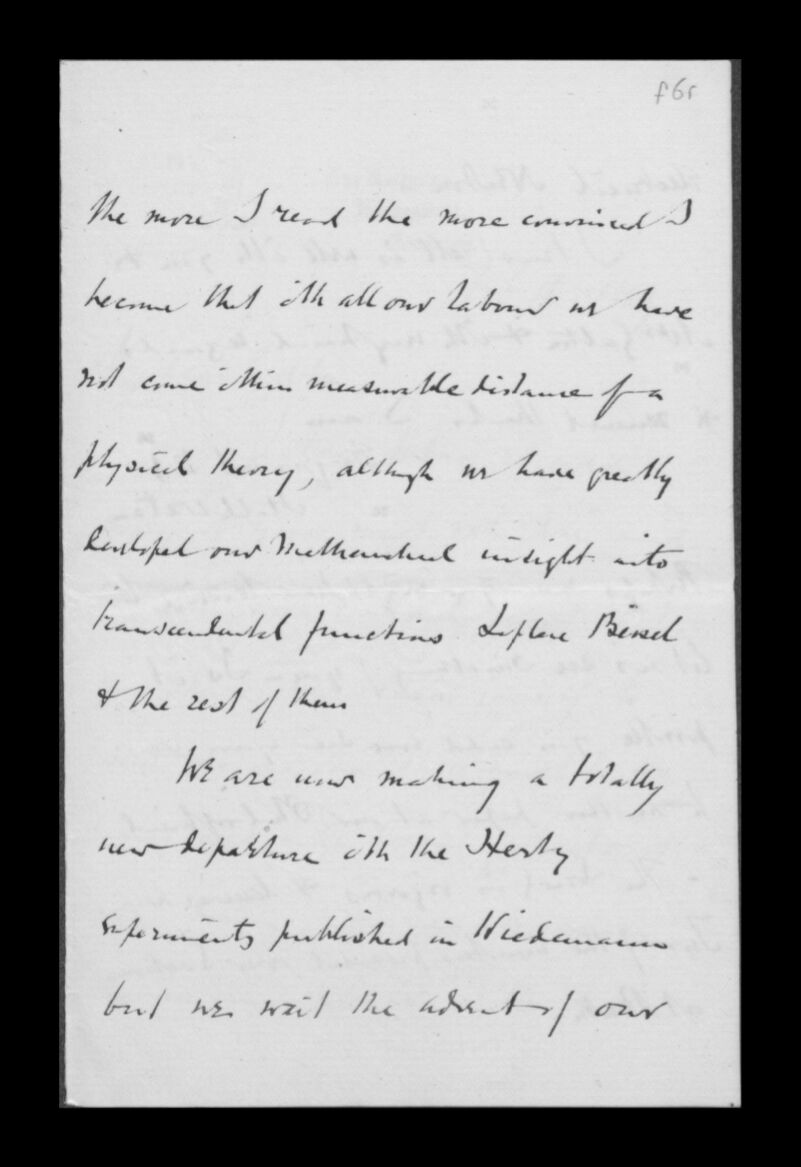 f6r
The more I read the more convinced I
become that with all our labour we have
not come within measurable distance of a
physical theory, although we have greatly
developed our mathematical insight into
transcendental functions Laplace Bessel
& the rest of them
We are now making a totally
new departure with the Hertz
experiments published in Wiedemann
but we wait the advent of our